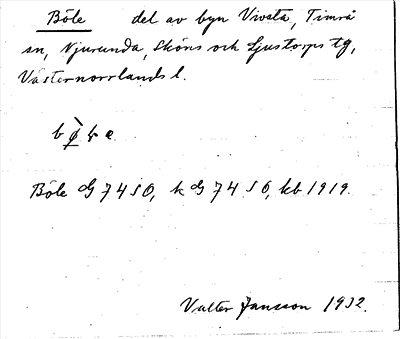 Böle del av byn Vivsta, Timrå
sn, Njurunda, Sköns och Ljustorps tg,
Västernorrlands l.
Böle G 74 SO, k G 74 SO, kb 1919
Valter Jansson 1932.